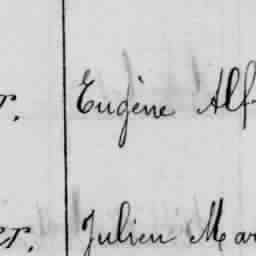 r. Eugène Alf
er. Julien Mar